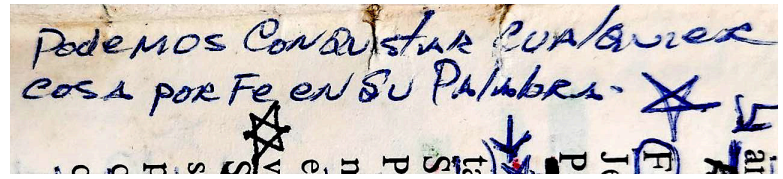 PodeMOS CONQUistAR CUAlquieR
COSA POR Fe eN SU PAlAbRA.